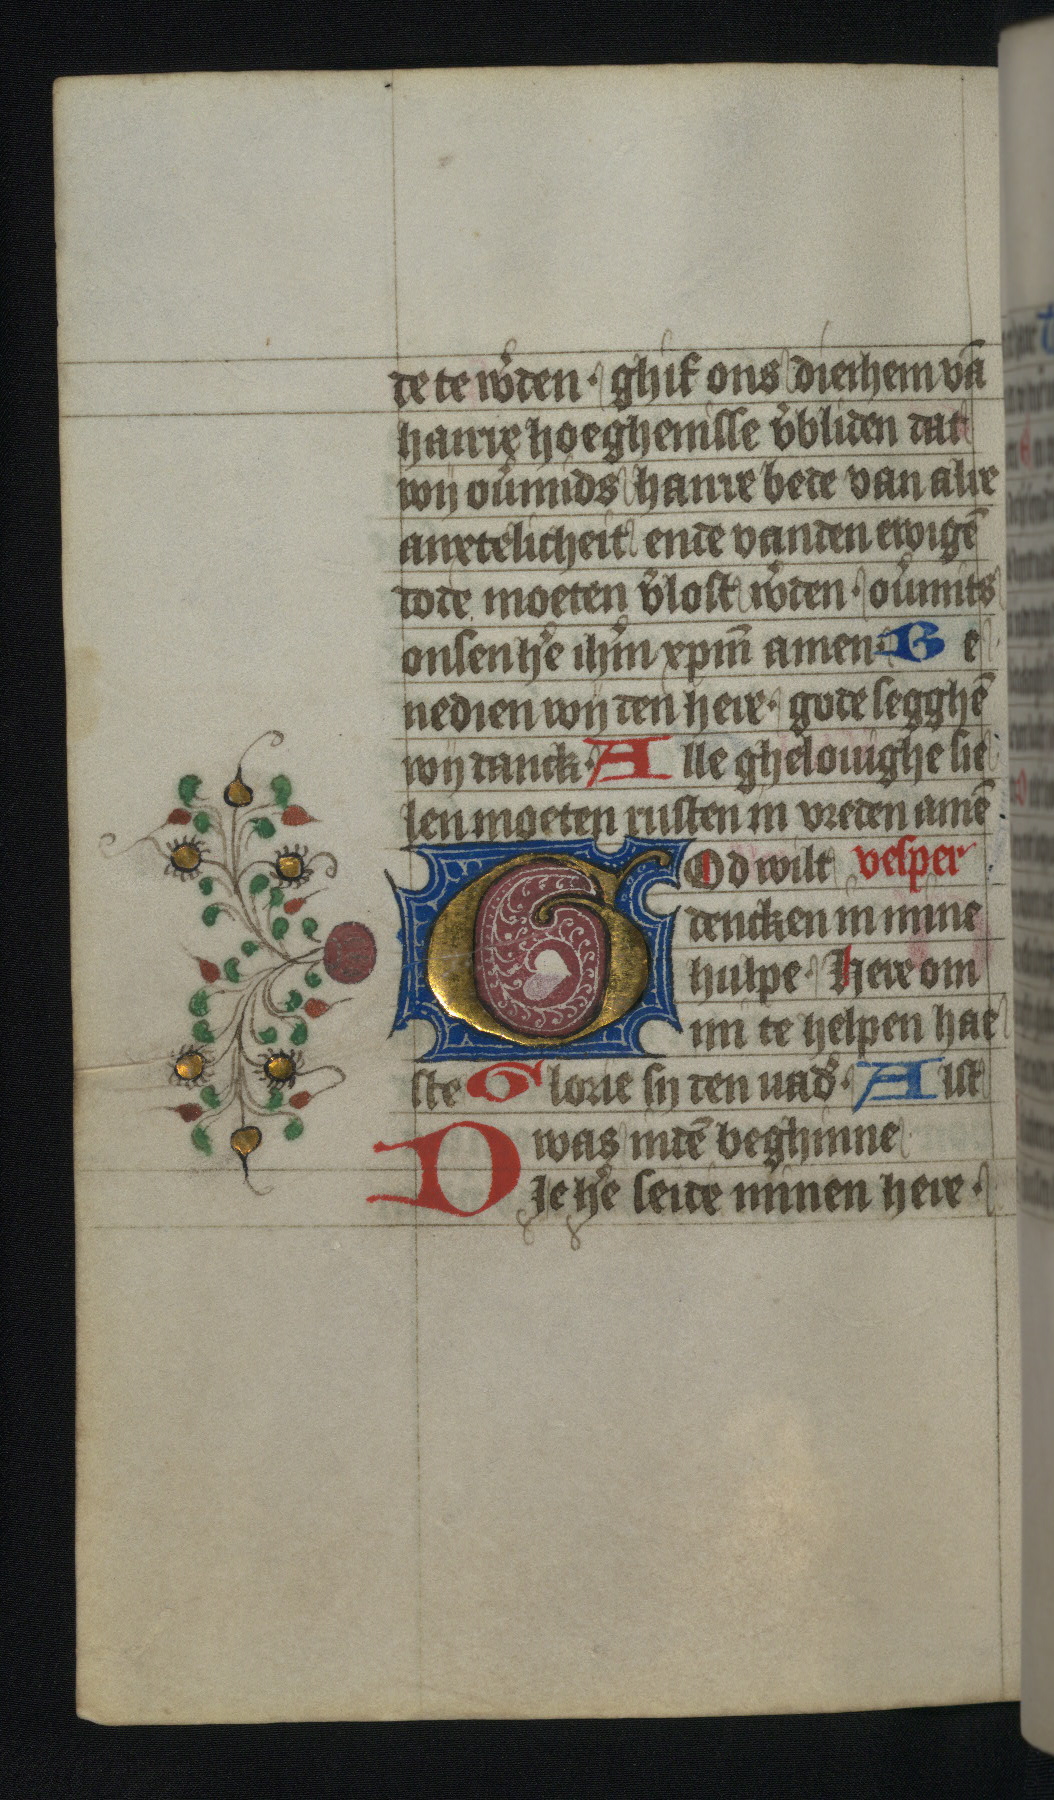 de te w͛den · ghif ons die hem vā
hairre hoeghenisse v͛bliden dat
wij ou͛mids haire bede van alre
anxtelicheit ende vanden ewigē
dode moeten v͛lost w͛den · ou͛mits
onsen he͛ ih͛m xpm̄ amen · G e
nedien wij den here · gode segghē
wij danck · A lle ghelouighe sie
len moeten rusten in vreden amē
God wilt vesper
dencken in mine
hulpe · Here om
mi te helpen hae
ste Glorie sy den uad͛ · A ist
was indē beghinne
Die he͛ seide minen here ·